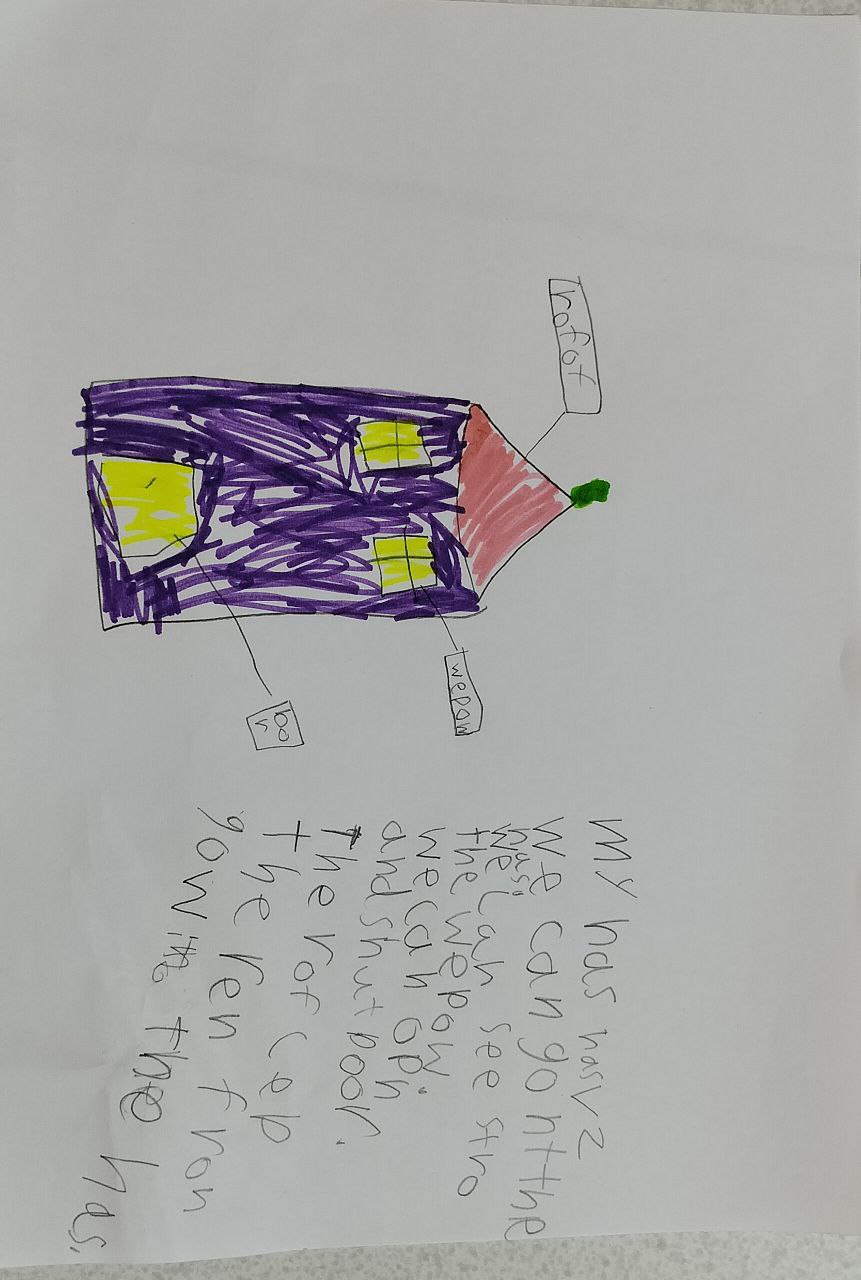 rofot
wepow
My has has v2
we can go ht the
has.
we can see stro
the wepow.
we can opn
and shut poor.
The rof cep
the ren fron
gowing the has.